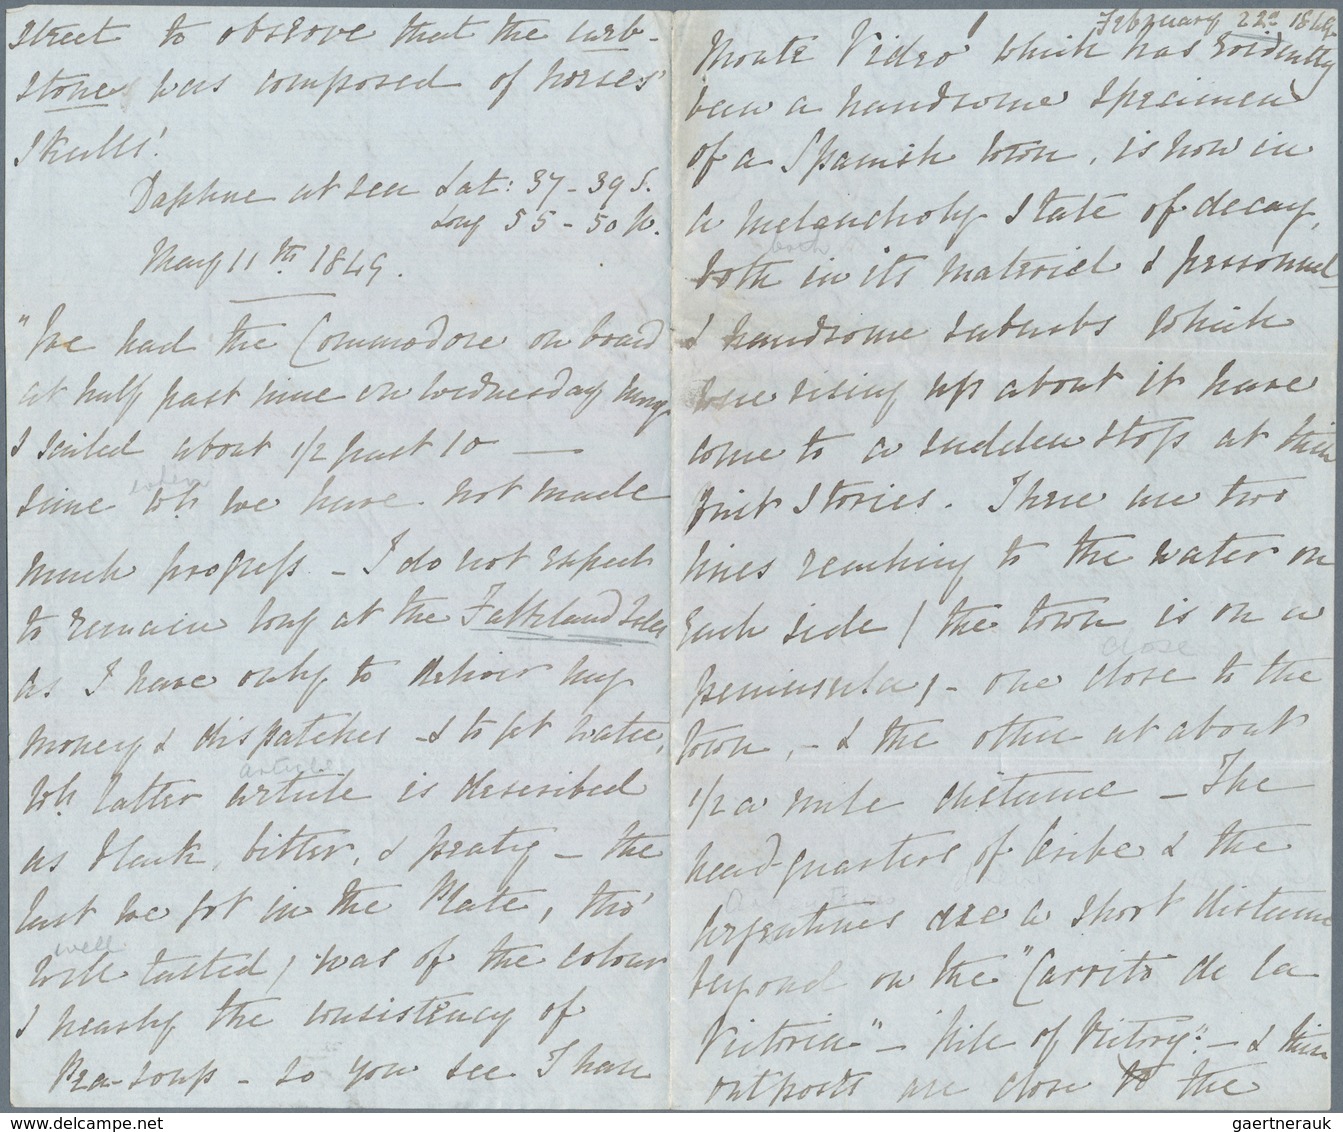 street to observe that the curb-
stone was composed of horses'
skulls!
Daphne at sea Lat: 37-39 S.
Long 55-50 W.
May 11th 1849.
"We had the Commodore on board
at half past nine on Wednesday morng
& sailed about 1/2 past 10 —
when
since wh. we have not made
much progress - I do not expect
to remain long at the Falkland Isles
as I have only to deliver my
money & dispatches - & to get water,
article
wh. latter article is described
as black, bitter, & peaty - the
last we got in the Plate, tho'
well
well tasted, was of the colour
& nearly the consistency of
Pea-soup - so you see I have
February 22nd
Monte Video which has evidently
been a handsome specimen
of a Spanish town, is now in
a melancholy state of decay,
both
both in its materiel & personnel
& handsome suburbs which
were rising up about it have
come to a sudden stop at their
first stories. There are two
lines reaching to the water on
each side (the town is on a
close
peninsula) - one close to the
town, - & the other at about
1/2 a mile distance - The
head-quarters of Oribe & the
Argentines are a short distance
beyond on the "Cerrito de la
Victoria" - "Hill of Victory" - & their
outposts are close to the
gaertnerauk - delcampe.net